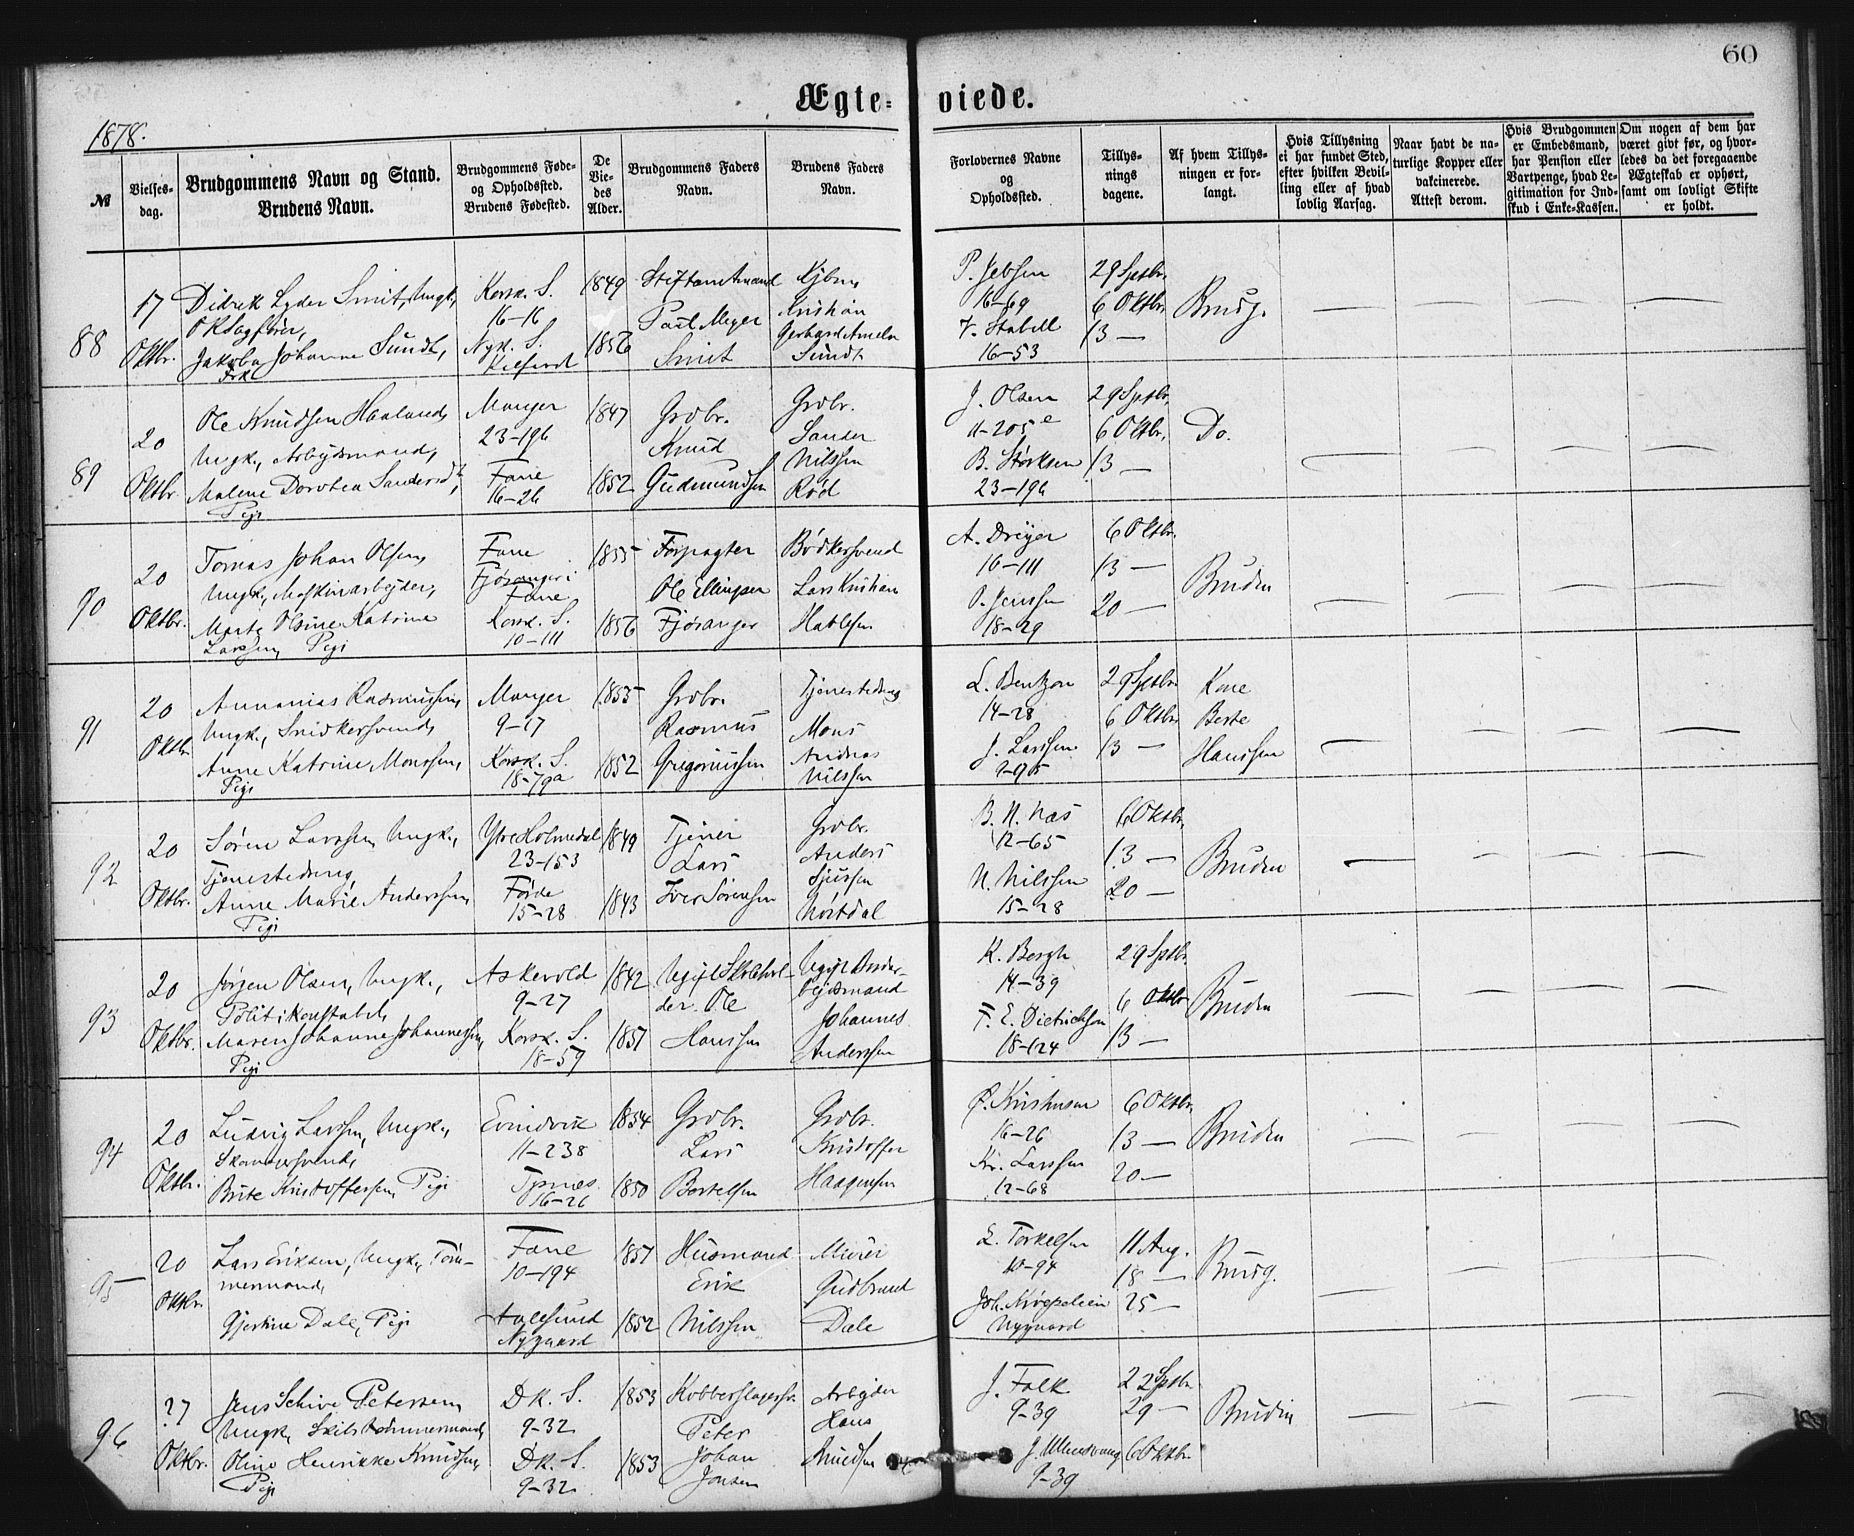 60
Ægte- viede.
1878.
№
Vielses-
dag.
Brudgommens Navn og Stand.
Brudens Navn.
Brudgommens Føde-
og Opholdssted.
Brudens Fødested.
De
Vie-
des
Alder.
Brudgommens Faders
Navn.
Brudens Faders
Navn.
Forlovernes Navne
og
Opholdssted.
Tillys-
nings
dagene.
Af hvem Tillys-
ningen er for-
langt.
Hvis Tillysning
ei har fundet Sted,
efter hvilken Bevil-
ling eller af hvad
lovlig Aarsag.
Naar havt de na-
turlige Kopper eller
vakcinerede.
Attest derom.
Hvis Brudgommen
er Embedsmand,
har Pension eller
Vartpenge, hvad Le-
gitimation for Ind-
skud i Enke-Kassen.
Om nogen af dem har
været givt før, og hvor-
ledes da det foregaaende
Ægteskab er ophørt,
samt om lovligt Skifte
er holdt.
88
17
Oktbr.
Didrik Lyder Smit, Ungk.,
Jakoba Johanne Sundt,
Frk
Korsk. S.
16-16
Nyk. S.
1849
1856
Paul Meyer
Smit
Kristian
Sundt
P. Jebsen
16-69
V. Stabell
16-53
29 Sptbr.
6 Oktbr.
13 —
Brudg.
89
20
Oktbr.
Ole Knudsen Haaland,
Ungk., Arbejdsmand,
Malene Dorotea Sandersdt,
Pige
Manger
23-196
Fane
16-26
1847
1852
Grdbr.
Knud
Gudmundsen
Grdbr.
Sander
Nilssen
Rød
J. Olsen
11-205 e
B. Størksen
23-196
29 Sptbr.
6 Oktbr.
13 —
Do.
90
20
Oktbr.
Tomas Johan Olsen,
Ungk., Maskinarbejder,
Marta Olsine Katrine
Larssen, Pige
Fane
Fjøsanger i
Fane
Korsk. S.
10-111
1855
1856
Forpagter
Ole Ellingsen
Fjøsanger
Bødkersvend
Lars Kristian
A. Dreyer
16-111
O. Jenssen
18-29
6 Oktbr.
13 —
20 —
Bruden
91
20
Oktbr.
Annanias Rasmussen,
Ungk., Snidkersvend,
Anne Katrine Monssen,
Pige
Manger
9-17
Korsk. S.
18-79a
1855
1852
Grdbr.
Rasmus
Gregoriussen
Tjenestedreng
Mons
Andreas
Nilssen
L. Bentzon
14-28
J. Larssen
29 Sptbr.
6 Oktbr.
13 —
Kone
Berte
Hanssen
92
20
Oktbr.
Søren Larssen, Ungk.,
Tjenestedreng
Anne Marie Anderssen,
Pige
Ytre Holmedal
23-153
Førde
15-28
1849
1843
Tjener
Lars
Iver Sørensen
Grdbr.
Anders
Sjurssen
B. N. Næs
12-65
N. Nilssen
15-28
6 Oktbr.
13 —
20 —
Bruden
93
20
Oktbr.
Jørgen Olsen, Ungk.,
Politikonstabel,
Maren Johanne Johannessen,
Pige
Askevold
9-27
Korsk. S.
18-59
1842
1851
Ugift Skolehol-
der. Ole
Hanssen
Johannes
Anderssen
K. Bergh
14-39
F. E. Dietrichson
18-124
29 Sptbr.
6 Oktbr
13 —
Bruden
94
20
Oktbr.
Ludvig Larssen, Ungk.,
Skomagersvend,
Brite Kristoffersen, Pige
Evindvik
11-238
16-26
1854
1850
Grdbr.
Lars
Bertelsen
Grdbr.
Kristoffer
Haagensen
16-26
Kr. Larssen
12-68
6 Oktbr.
13 —
20 —
Bruden
95
20
Oktbr.
Lars Eriksen, Ungk., Tøm-
mermand,
Gjertine Dale, Pige
Fane
10-194
Aalesund
Nygaard
1851
1852
Husmand
Erik
Nilssen
Murer
Gudbrand
Dale
E. Torkelsen
10-94
Nygaard
11 Aug.
18 —
25 —
Brudg.
96
27
Oktbr.
Jens Schive Petersen,
Ungk., Skibstømmermand,
Oline Henrikke Knudsen,
Pige
Dk. S.
9-32
Dk. S.
9-32
1853
1853
Kobberslagersv.
Peter
Johan
Jensen
Arbejder
Hans
Knudsen
J. Falk
9-39
9-39
22 Sptbr.
29 —
6 Oktbr.
Bruden